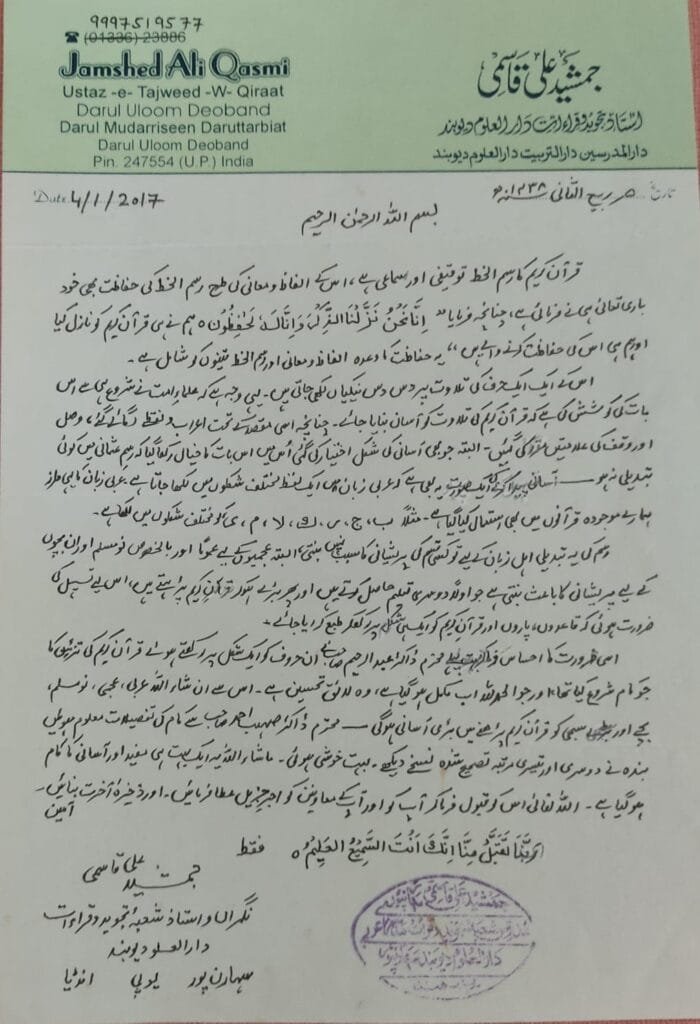 9997519577
☎ (01336) 23886
Jamshed Ali Qasmi
Ustaz -e- Tajweed -W- Qiraat
Darul Uloom Deoband
Darul Mudarriseen Daruttarbiat
Darul Uloom Deoband
Pin. 247554 (U.P.) India
جمشید علی قاسمی
استاذ تجوید و قراءت دار العلوم دیوبند
دار المدرسین دار التربیت دار العلوم دیوبند
Date 4/1/2017
تاریخ ۵ ربیع الثانی ۱۴۳۸ھ
بسم اللہ الرحمن الرحیم
قرآن کریم کا رسم الخط توقیفی اور سماعی ہے، اس کے الفاظ و معانی کی طرح رسم الخط کی حفاظت بھی خود
باری تعالیٰ ہی نے فرمائی ہے، چنانچہ فرمایا "اِنَّا نَحْنُ نَزَّلْنَا الذِّکْرَ وَاِنَّا لَہٗ لَحٰفِظُوْنَ ہم نے ہی قرآن کریم کو نازل کیا
اور ہم ہی اس کی حفاظت کرنے والے ہیں" یہ حفاظت کا وعدہ الفاظ و معانی اور رسم الخط تینوں کو شامل ہے۔
اس کے ایک ایک حرف کی تلاوت پر دس دس نیکیاں لکھی جاتی ہیں۔ یہی وجہ ہے کہ علماء امت نے شروع ہی سے اس
بات کی کوشش کی ہے کہ قرآن کریم کی تلاوت کو آسان بنایا جائے۔ چنانچہ اسی مقصد کے تحت اعراب و نقطے لگائے گئے، وصل
اور وقف کی علامتیں مقرر کی گئیں۔ البتہ جو بھی آسانی کی شکل اختیار کی گئی اُس میں اس بات کا خیال رکھا گیا کہ رسم عثمانی میں کوئی
تبدیلی نہ ہو — آسانی پیدا کرنے کی ایک صورت یہ بھی ہے کہ عربی زبان میں ایک لفظ مختلف شکلوں میں لکھا جاتا ہے۔ عربی زبان کا یہی طرز
ہمارے موجودہ قرآنوں میں بھی استعمال کیا گیا ہے۔ مثلاً ب، ج، س، ک، لا، م، ی کو مختلف شکلوں میں لکھا ہے۔
رسم کی یہ تبدیلی اہل زبان کے لیے تو کسی قسم کی پریشانی کا سبب نہیں بنتی، البتہ عجمیوں کے لیے عموماً اور بالخصوص نو مسلم اور ان بچوں
کے لیے پریشانی کا باعث بنتی ہے جو اولاً دوسری تعلیم حاصل کرتے ہیں اور پھر قرآن کریم پڑھتے ہیں، اس لیے تسہیل کی
ضرورت ہوئی کہ قاعدوں، پاروں اور قرآن کریم کو ایک ہی شکل پر رکھ کر طبع کرایا جائے۔
اسی ضرورت کا احساس محترم ڈاکٹر عبد الرحیم صاحب نے ان حروف کو ایک شکل پر رکھتے ہوئے قرآن کریم کی تزئین کا
جو کام شروع کیا تھا اور جو الحمد للہ اب مکمل ہو گیا ہے، وہ لائق تحسین ہے۔ اس سے ان شاء اللہ عربی، عجمی، نو مسلم،
بچے اور سبھی کو قرآن کریم پڑھنے میں بڑی آسانی ہوگی — محترم ڈاکٹر صہیب احمد صاحب سے کام کی تفصیلات معلوم ہوئیں
بندہ نے دوسری اور تیسری مرتبہ تصحیح شدہ نسخے دیکھے۔ بہت خوشی ہوئی۔ ماشاء اللہ یہ ایک بہت ہی مفید اور آسانی کا کام
ہو گیا ہے۔ اللہ تعالیٰ اس کو قبول فرما کر آپ کو اور آپ کے معاونین کو اجر جزیل عطا فرمائیں۔ اور ذخیرۂ آخرت بنائیں۔
آمین
رَبَّنَا تَقَبَّلْ مِنَّا اِنَّکَ اَنْتَ السَّمِیْعُ الْعَلِیْمُ فقط
جمشید علی قاسمی
نگراں و استاذ شعبۂ تجوید و قراءت
دار العلوم دیوبند
سہارن پور یوپی انڈیا
جمشید علی قاسمی
دار العلوم دیوبند